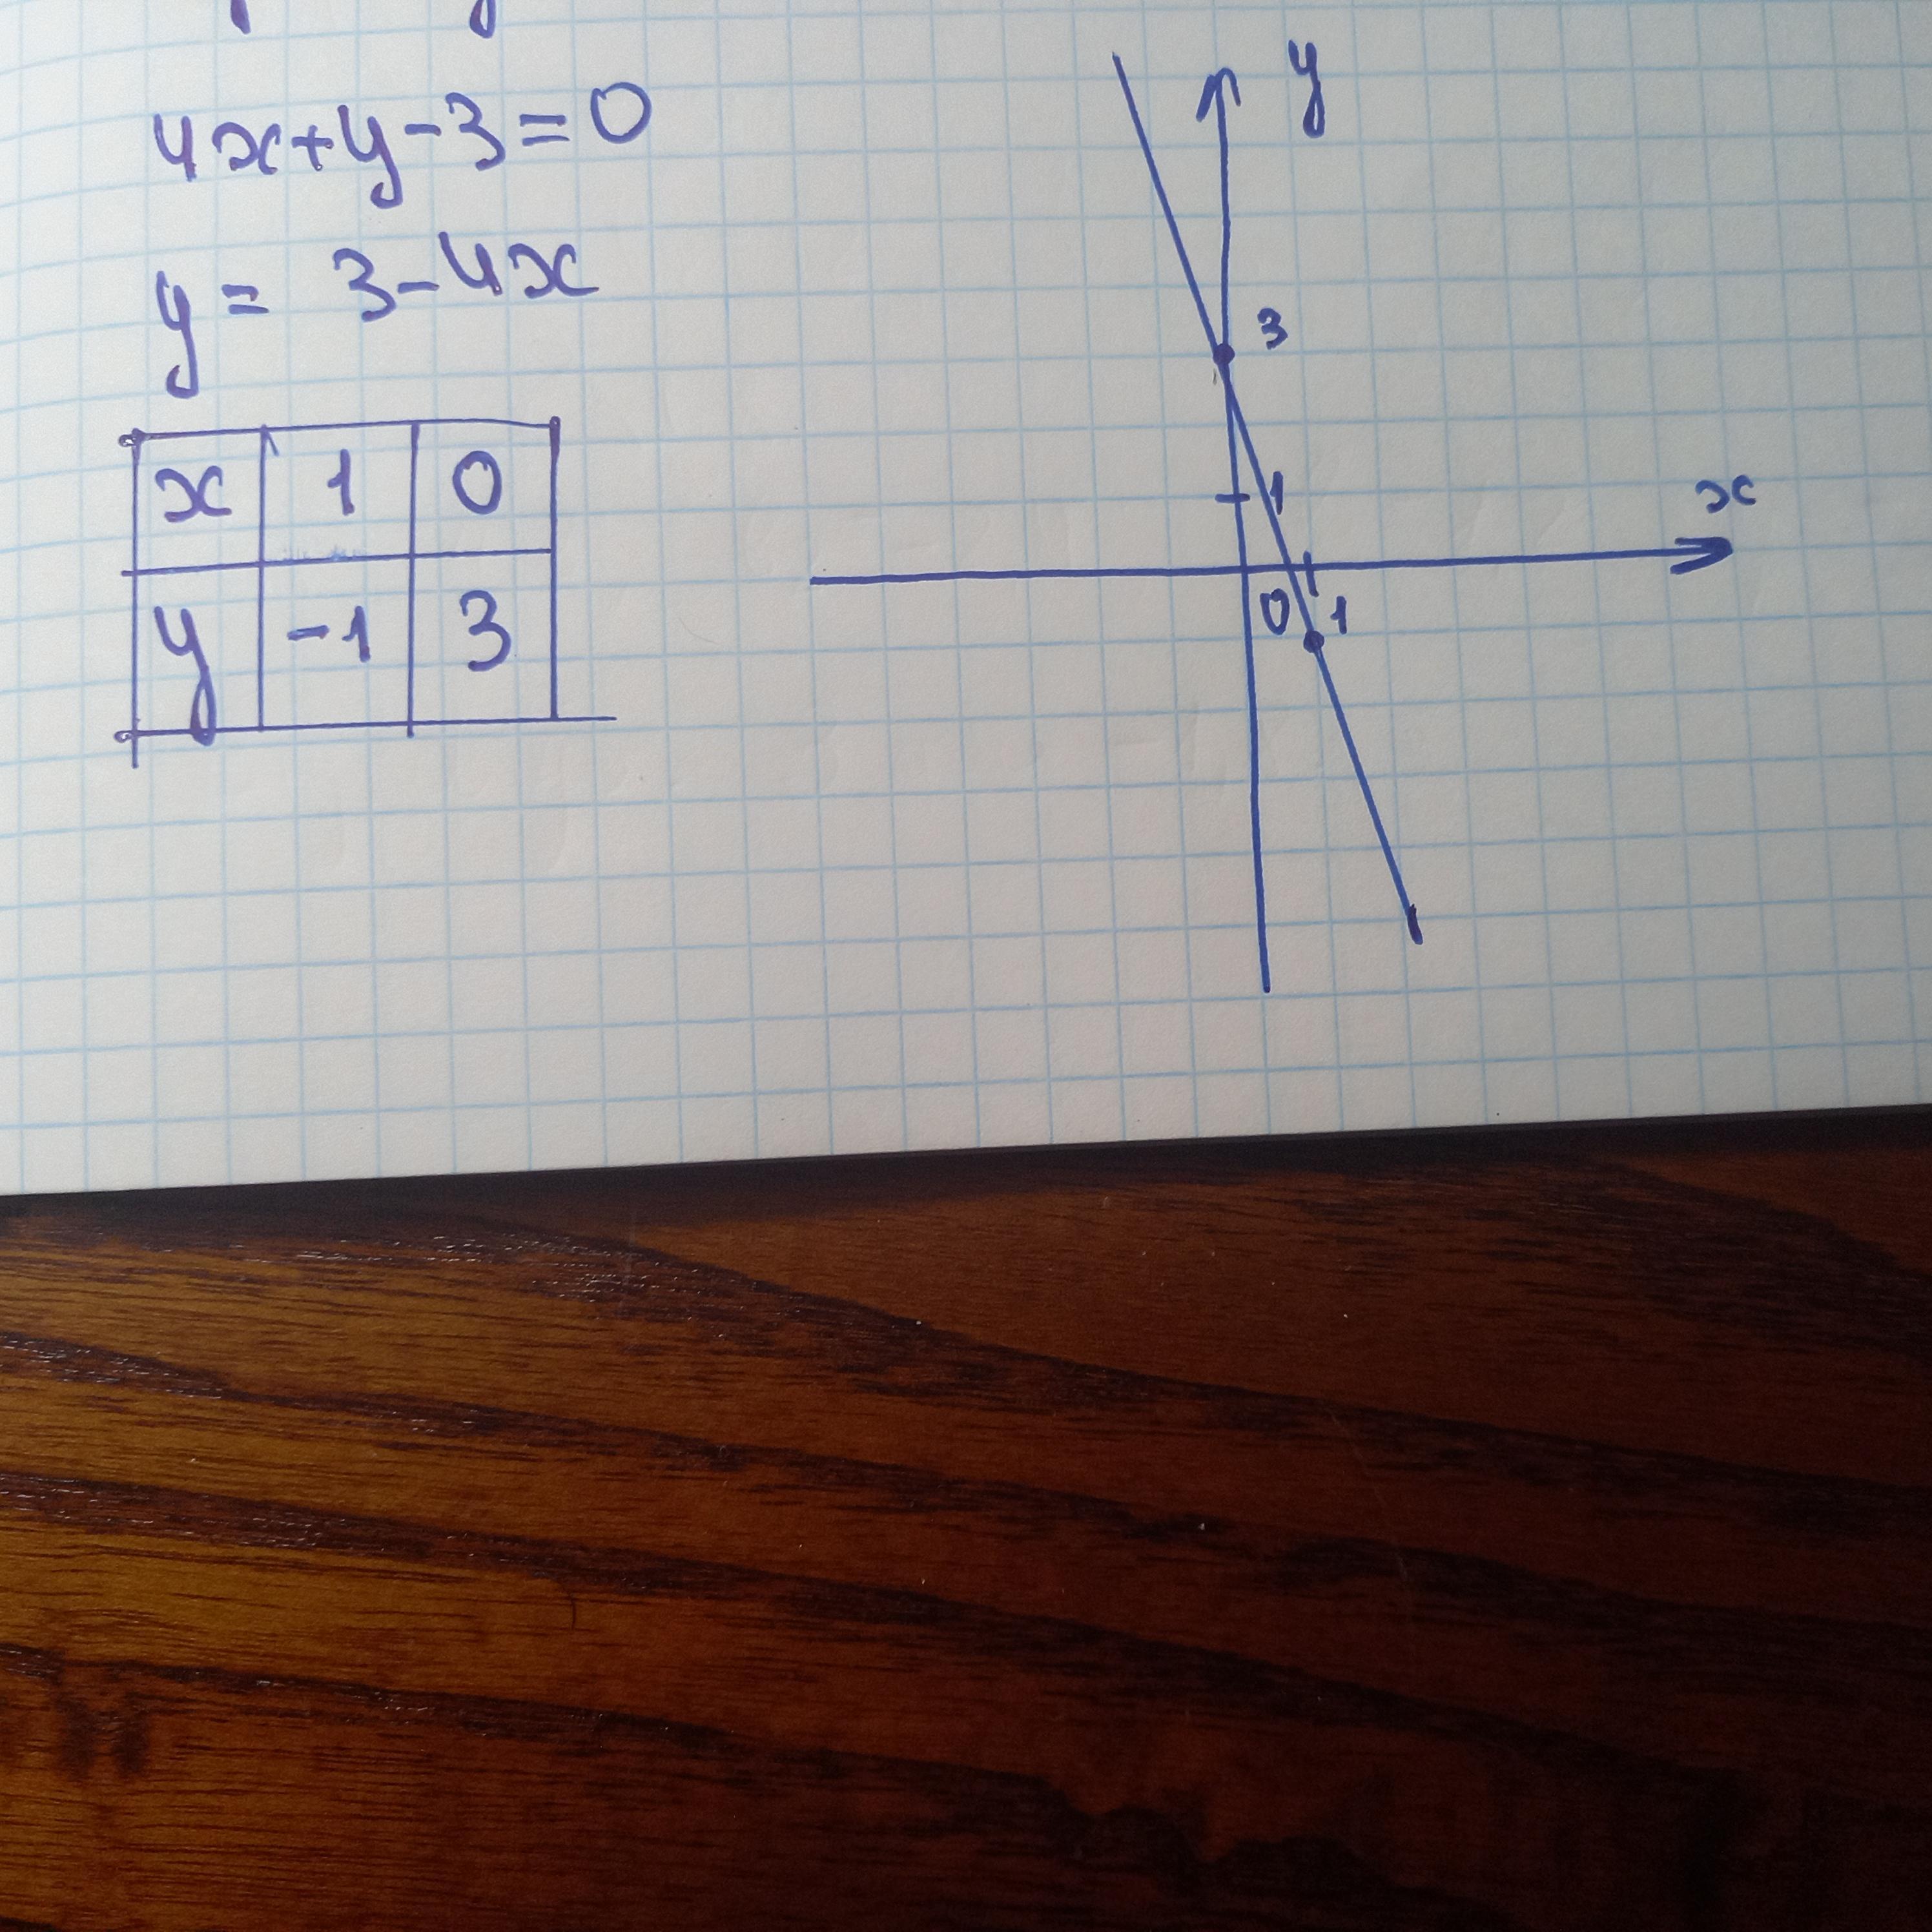 4x+y-3=0
y = 3-4x
x 1 0
y -1 3
y
3
1
x
0 1